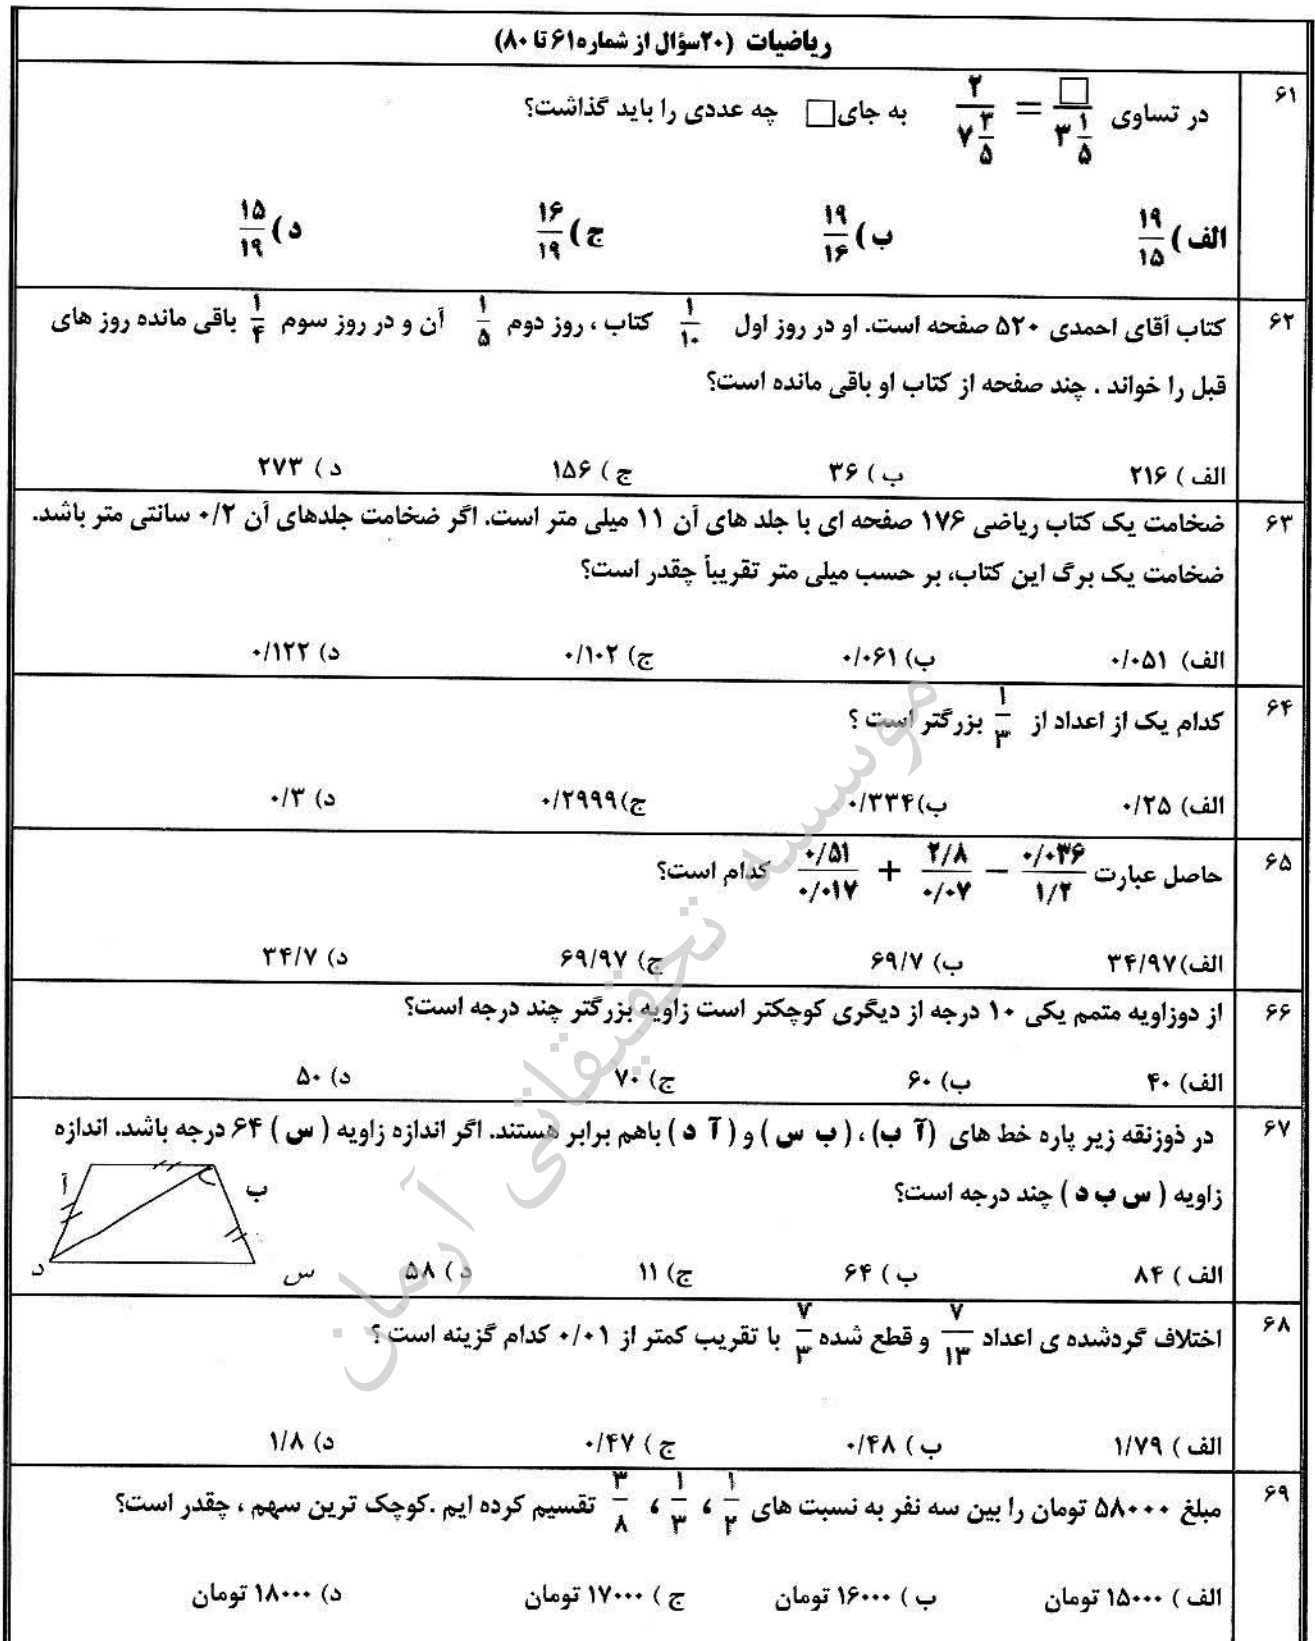 ریاضیات (۲۰سؤال از شماره۶۱ تا ۸۰)
۶۱ در تساوی □/(۳ ۱/۵) = ۲/(۷ ۳/۵) به جای□ چه عددی را باید گذاشت؟
الف) ۱۹/۱۵ ب) ۱۹/۱۶ ج) ۱۶/۱۹ د) ۱۵/۱۹
۶۲ کتاب آقای احمدی ۵۲۰ صفحه است. او در روز اول ۱/۱۰ کتاب ، روز دوم ۱/۵ آن و در روز سوم ۱/۴ باقی مانده روز های
قبل را خواند . چند صفحه از کتاب او باقی مانده است؟
الف ) ۲۱۶ ب ) ۳۶ ج ) ۱۵۶ د ) ۲۷۳
۶۳ ضخامت یک کتاب ریاضی ۱۷۶ صفحه ای با جلد های آن ۱۱ میلی متر است. اگر ضخامت جلدهای آن ۰/۲ سانتی متر باشد.
ضخامت یک برگ این کتاب، بر حسب میلی متر تقریباً چقدر است؟
الف) ۰/۰۵۱ ب) ۰/۰۶۱ ج) ۰/۱۰۲ د) ۰/۱۲۲
۶۴ کدام یک از اعداد از ۱/۳ بزرگتر است ؟
الف) ۰/۲۵ ب)۰/۳۳۴ ج)۰/۲۹۹۹ د) ۰/۳
۶۵ حاصل عبارت ۰/۵۱/۰/۰۱۷ + ۲/۸/۰/۰۷ − ۰/۰۳۶/۱/۲ کدام است؟
الف)۳۴/۹۷ ب) ۶۹/۷ ج) ۶۹/۹۷ د) ۳۴/۷
۶۶ از دوزاویه متمم یکی ۱۰ درجه از دیگری کوچکتر است زاویه بزرگتر چند درجه است؟
الف) ۴۰ ب) ۶۰ ج) ۷۰ د) ۵۰
۶۷ در ذوزنقه زیر پاره خط های (آ ب) ، ( ب س ) و ( آ د ) باهم برابر هستند. اگر اندازه زاویه ( س ) ۶۴ درجه باشد. اندازه
زاویه ( س ب د ) چند درجه است؟
آ ب
د س
الف ) ۸۴ ب ) ۶۴ ج) ۱۱ د ) ۵۸
۶۸ اختلاف گردشده ی اعداد ۷/۱۳ و قطع شده ۷/۳ با تقریب کمتر از ۰/۰۱ کدام گزینه است ؟
الف ) ۱/۷۹ ب ) ۰/۴۸ ج ) ۰/۴۷ د) ۱/۸
۶۹ مبلغ ۵۸۰۰۰ تومان را بین سه نفر به نسبت های ۱/۲ ، ۱/۳ ، ۳/۸ تقسیم کرده ایم .کوچک ترین سهم ، چقدر است؟
الف ) ۱۵۰۰۰ تومان ب ) ۱۶۰۰۰ تومان ج ) ۱۷۰۰۰ تومان د) ۱۸۰۰۰ تومان
موسسه تحقیقاتی آرمان